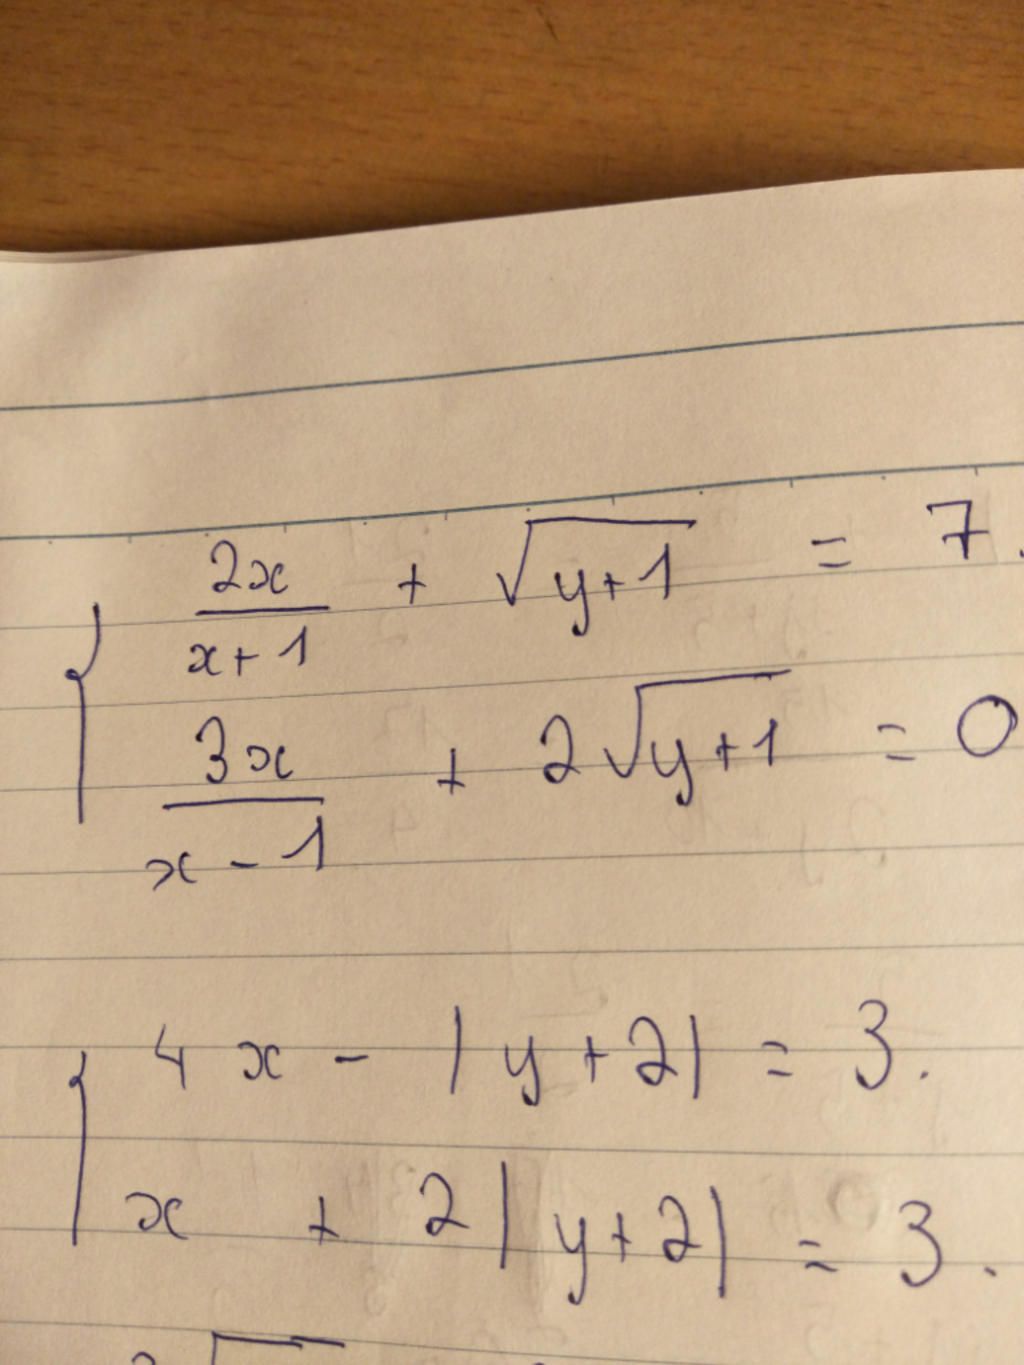 2x/(x+1) + √(y+1) = 7.
3x/(x-1) + 2√(y+1) = 0
4x - |y+2| = 3.
x + 2|y+2| = 3.